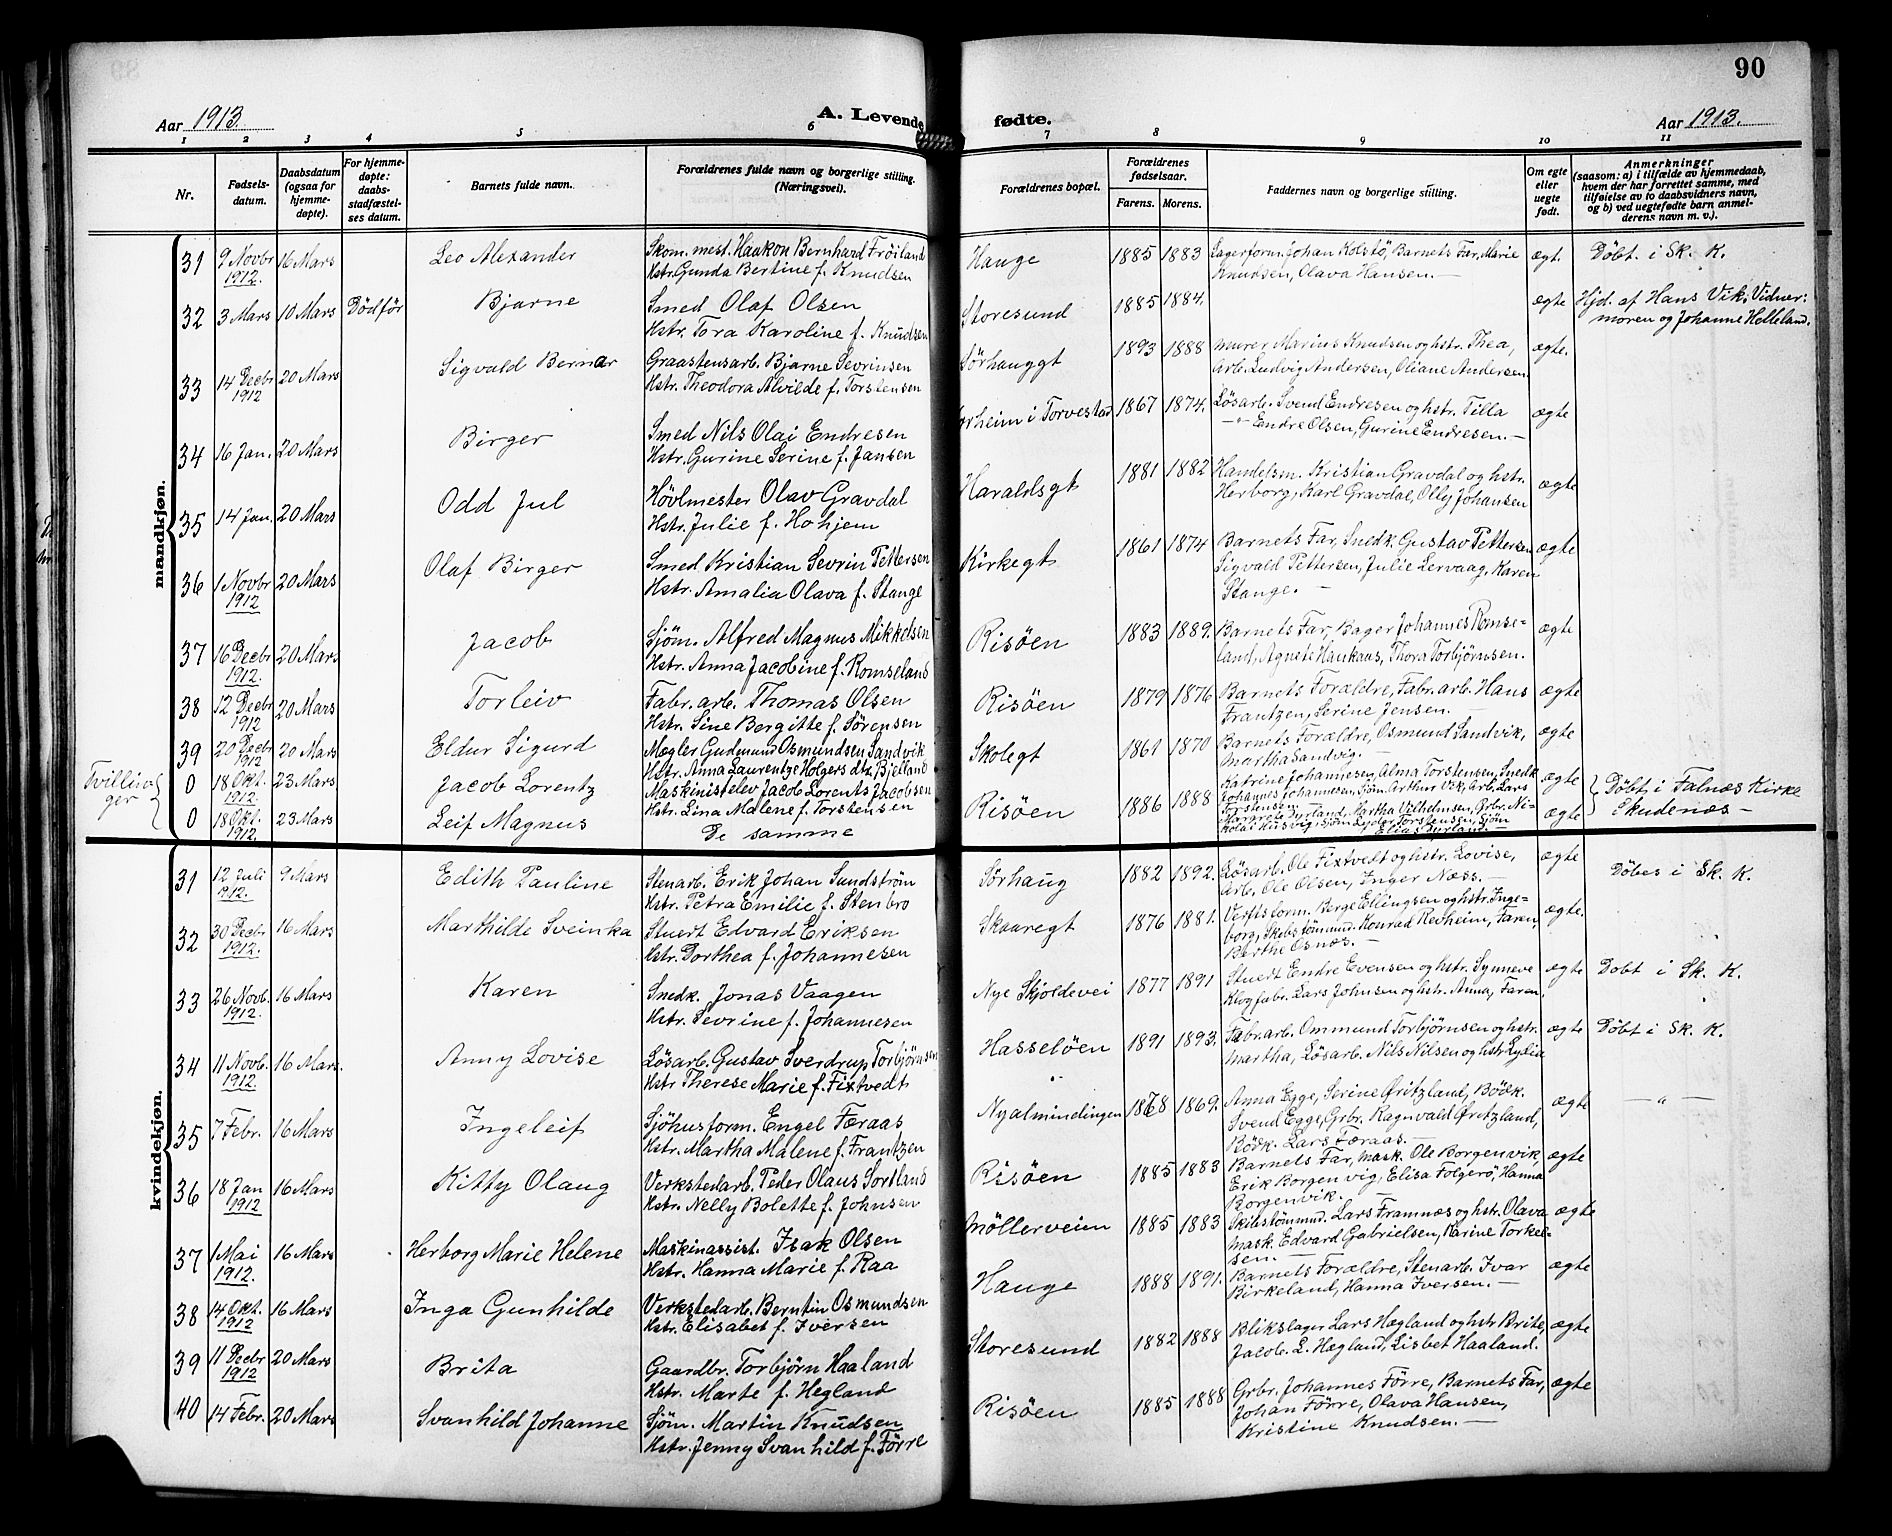 90
Aar 1913.
A. Levende fødte.
Aar 1913.
1 2 3 4 5 6 7 8 9 10 11
Nr.
Fødsels-
datum.
Daabsdatum
(ogsaa for
hjemme-
døpte).
For hjemme-
døpte:
daabs-
stadfæstel-
ses datum.
Barnets fulde navn.
Forældrenes fulde navn og borgerlige stilling.
(Næringsvei).
Forældrenes bopæl.
Forældrenes
fødselsaar.
Farens. Morens.
Faddernes navn og borgerlige stilling.
Om egte
eller
uegte
født.
Anmerkninger
(saasom: a) i tilfælde av hjemmedaab,
hvem der har forrettet samme, med
tilføielse av to daabsvidners navn,
og b) ved uegtefødte barn anmel-
derens navn m. v.).
mandkjøn.
31 9 Novbr 1912. 16 Mars Leo Alexander Skom. mest. Haakon Bernhard Fröiland
Hstr. Gunda Bertine f. Knudsen
Hauge 1885 1883 Lagerform. Johan Kolstö, Barnets Far, Marie
Knudsen, Olava Hansen.— ægt. Döbt. i Sk. K.
32 3 Mars 10 Mars Dödför Bjarne Smed Olaf Olsen
Hstr. Tora Karoline f. Knudsen
Storesund 1885 1884. ægte Hjd. af Hans Vik. Vidner:
moren og Johanne Helleland.
33 14 Decbr 1912 20 Mars Sigvald Bernar Graastensarb. Bjarne Sevrinsen
Hstr. Theodora Alvilde f. Torstensen
Sörhauggt 1893 1888 murer Marius Knudsen og hstr. Thea,
Arb. Ludvig Andersen, Oliane Andersen. ægte.
34 16 Jan. 20 Mars Birger Smed Nils Olai Endresen
Hstr. Gurine Serine f. Jansen
i Torvestad 1867 1874. Lösarb. Svend Endresen og hstr. Tilla
—"— Endre Olsen, Gurine Endresen.— ægte
35 14 Jan. 20 Mars Odd Jul Hövlmester Olav Gravdal
Hstr. Julie f. Hohjem
Haraldsgt 1881 1882 Handelsm. Kristian Gravdal og hstr.
Herborg, Karl Gravdal, Olly Johansen ægte
36 1 Novbr 1912 20 Mars Olaf Birger Smed Kristian Sevrin Pettersen
Hstr. Amalia Olava f. Stange
Kirkegt 1861 1874 Barnets Far, Snedk. Gustav Pettersen
Sigvald Pettersen, Julie Lervaag, Karen
Stange.— ægte
37 16 Decbr 1912. 20 Mars Jacob Sjöm. Alfred Magnus Mikkelsen
Hstr. Anna Jacobine f. Romseland
Risöen 1883 1889. Barnets Far, Bager Johannes Romse-
land, Agnete Haukaas, Thora Torbjörnsen. ægte
38 12 Decbr 1912 20 Mars Torleiv Fabr. arb. Thomas Olsen
Hstr. Sine Bergitte f. Sörensen
Risöen 1879 1876 Barnets Forældre, Fabr. arb. Hans
Frantzen, Serine Jensen.— ægte
39 20 Decbr 1912 20 Mars Eldur Sigurd Mægler Gudmund Osmundsen Sandvik
Hstr. Anna Laurentze Holgers dtr. Bjelland
Skolegt 1861 1870 Barnets Forældre, Osmund Sandvik,
Martha Sandvig.— ægte
Tvillin-
ger
0 18 Okt. 1912. 23 Mars Jacob Lorentz Maskinistelev Jacob Lorents Jacobsen
Hstr. Lina Malene f. Torstensen
Risöen 1886 1888 Katrine Johannesen, Alma Torstensen, Snedk
Johannes Johannesen, Sjöm. Arthur Vik, Arb. Lars
Torstensen.— ægte Döbt i Falnæs Kirke
Skudenæs—
0 18 Okt. 1912. 23 Mars Leif Magnus De samme
Margrete Byrland, Martha Vilhelmsen, Grbr. Ni-
kolai Husvig, Sjöm. Peder Torstensen, Sjöm
Elias Byrland.— ægte
kvindekjøn.
31 12 Juli 1912. 9 Mars Edith Pauline Stenarb. Erik Johan Sundström
Hstr. Petra Emilie f. Stenbro
Sörhaug 1882 1892. Lösarb. Ole Fixtvedt og hstr. Lovise,
Arb. Ole Olsen, Inger Næss.— ægte Döbes i Sk. K.
32 30 Decbr 1912. 16 Mars Marthilde Sveinka Stuert Edvard Eriksen
Hstr. Dorthea f. Johannesen
Skaaregt 1876 1881. Verftsform. Berge Ellingsen og hstr. Inge-
borg, Skibstömmd. Konrad Revheim, Faren,
Berthe Osnæs.— ægte.
33 26 Novb. 1912. 16 Mars Karen Snedk. Jonas Vaagen
Hstr. Sevrine f. Johannesen
Nye Skjoldevei 1877 1891 Stuert Endre Evensen og hstr. Synneve
Klogfabr. Lars Johnsen og hstr. Anna, Faren. ægte Dobt i Sk. K.
34 11 Novb. 1912. 16 Mars. Anny Lovise Lösarb. Gustav Sverdrup Torbjörnsen
Hstr Therese Marie f. Fixtvedt
Hasselöen 1891 1893. Fabr. arb. Ommund Torbjörnsen og hstr.
Martha, Lösarb. Nils Nilsen og hstr Lydia ægte Döbt i Sk. K.
35 7 Febr. 16 Mars Ingeleif Sjöhusform. Engel Færaas
Hstr. Martha Malene f. Frantzen
Nyalmindingen 1868 1869. Anna Egge, Serine Öritzland, Bödk.
Svend Egge, Grbr. Ragnvald Öritzland,
Bödk. Lars Færaas.— ægte —"—
36 18 Jan 1912 16 Mars Kitty Olaug Verkstedarb. Peder Olaus Sortland
Hstr. Nelly Bolette f. Johnsen
Risöen 1885 1883 Barnets Far, Mask. Ole Borgenvik,
Erik Borgenvig, Elisa Folgerö, Hanna
Borgenvik.— ægte
37 1 Mai 1912. 16 Mars Herborg Marie Helene Maskinassist. Isak Olsen
Hstr. Hanna Marie f. Raa
Möllerveien 1885 1883 Skibstömmd. Lars Framnæs og hstr. Olava
Mask. Edvard Gabrielsen, Karine Torkel-
sen.— ægte
38 14 Okt. 1912 16 Mars Inga Gunhilde Verkstedarb. Berntin Osmundsen
Hstr. Elisabet f. Iversen
Hauge 1888 1891. Barnets Forældre, Stenarb. Ivar
Birkeland, Hanna Iversen.— ægte
39 11 Decbr 1912 20 Mars Brita Gaardbr. Torbjörn Haaland
Hstr. Marte f. Hegland
Storesund 1882 1888 Blikslager Lars Hægland og hstr Brite,
Jacob. L. Hægland, Lisbet Haaland. ægte
40 14 Febr. 20 Mars Svanhild Johanne Sjöm. Martin Knudsen
Hstr. Jenny Svanhild f. Förre
Risöen 1885 1888 Grbr. Johannes Förre, Barnets Far,
Johan Förre, Olava Hansen,
Kristine Knudsen.— ægte